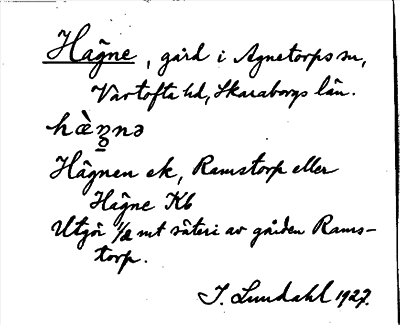 Hägne, gård i Agnetorps sn,
Vartofta hd, Skaraborgs län.
Hägnen ek, Ramstorp eller
Hägne Kb
Utgör 1/2 mt säteri av gården Rams-
torp.
I. Lundahl 1927.